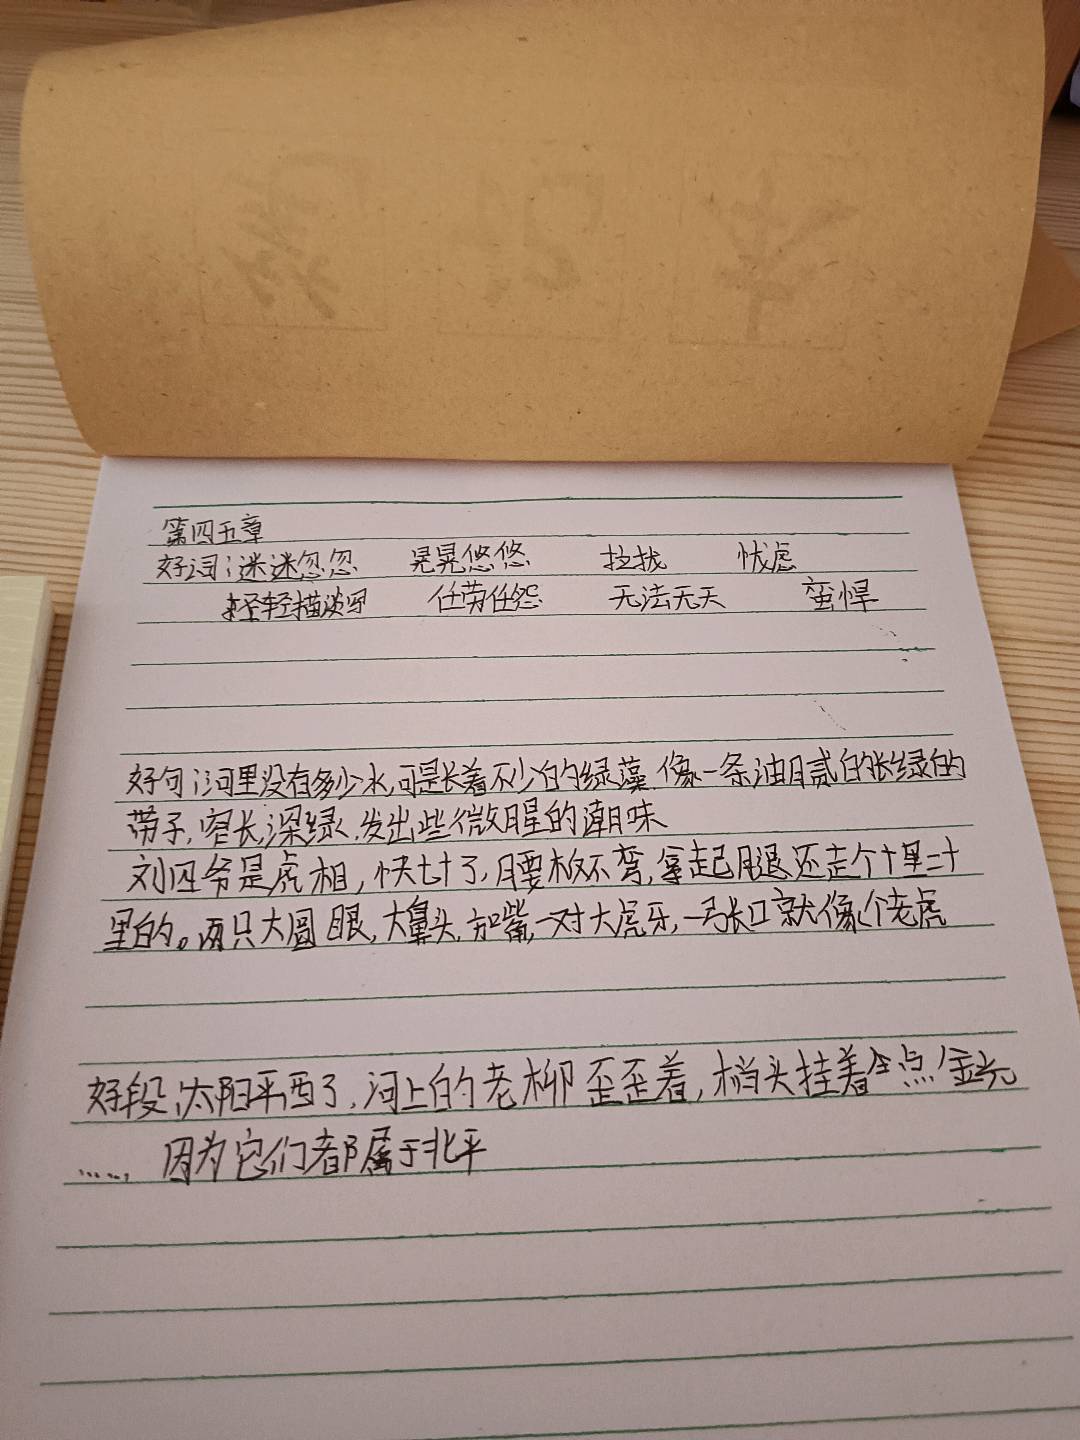 第四五章
好词:迷迷忽忽 晃晃悠悠 拉拢 忧虑
轻轻描淡写 任劳任怨 无法无天 蛮悍
好句:河里没有多少水,可是长着不少的绿藻,像一条油腻的长绿的
带子,窄长,深绿,发出些微腥的潮味
刘四爷是虎相,快七十了,腰板不弯,拿起腿还走个十里二十
里的。两只大圆眼,大鼻头,方嘴,一对大虎牙,一张口就像个老虎
好段:太阳平西了,河上的老柳歪歪着,梢头挂着点金光
……,因为它们都属于北平